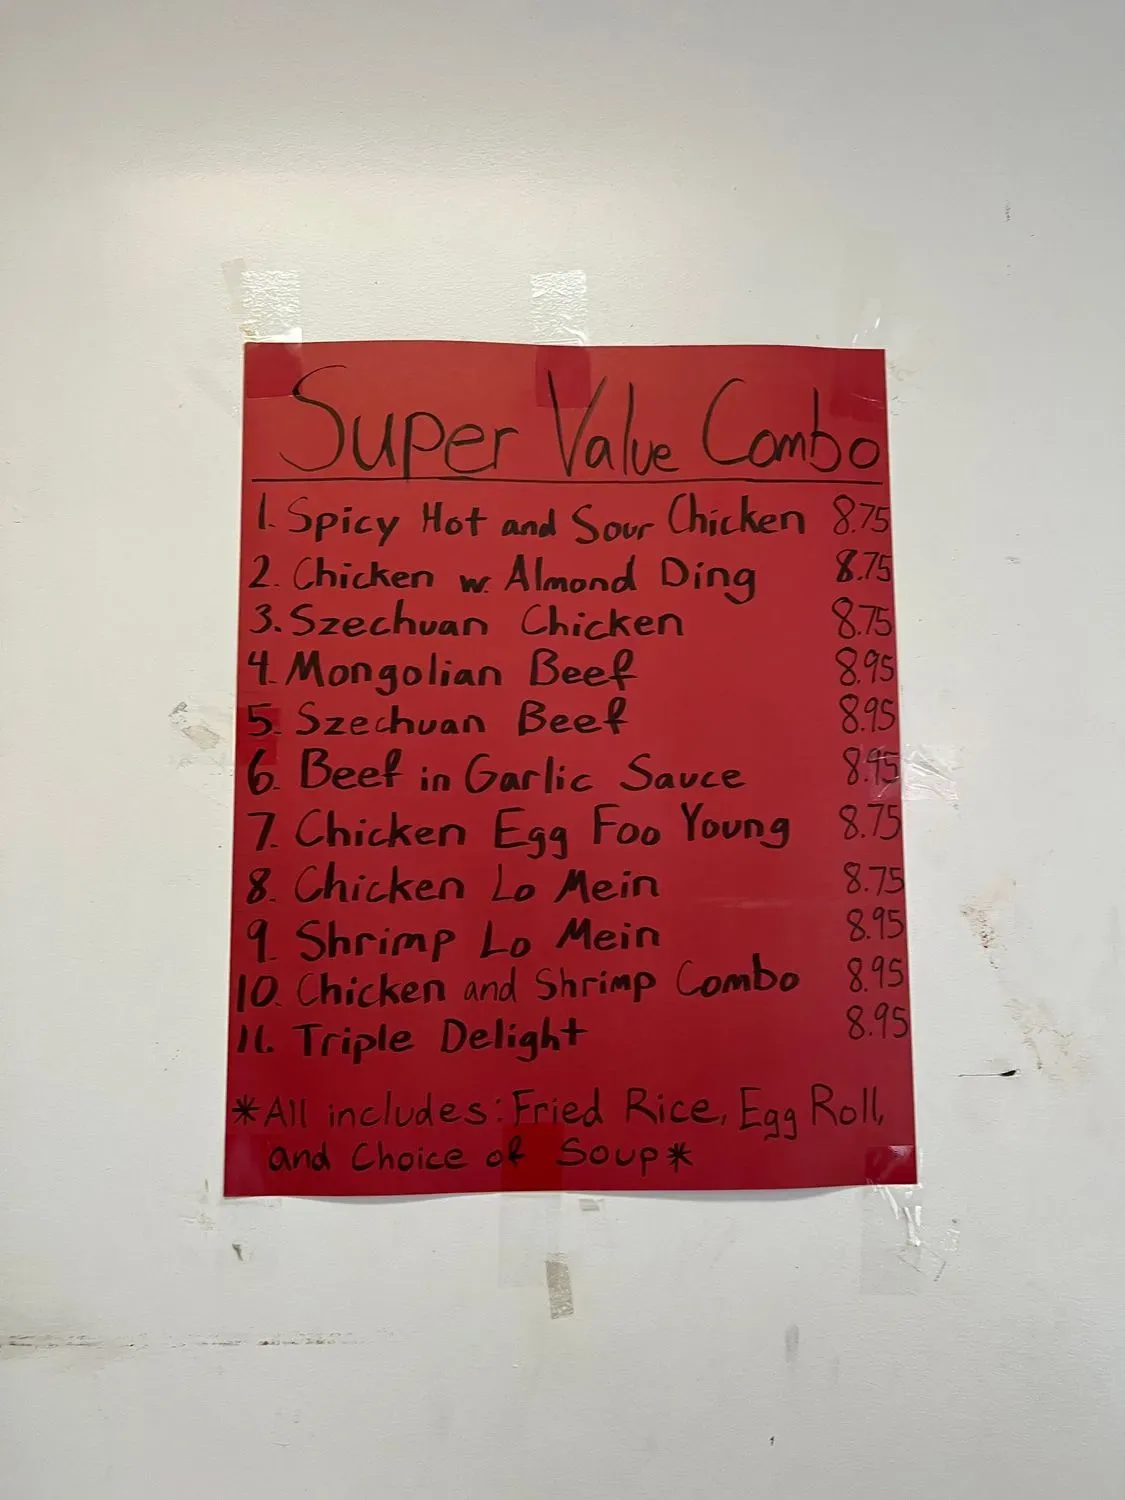 Super Value Combo
1. Spicy Hot and Sour Chicken 8.75
2. Chicken w. Almond Ding 8.75
3. Szechuan Chicken 8.75
4. Mongolian Beef 8.95
5. Szechuan Beef 8.95
6. Beef in Garlic Sauce 8.95
7. Chicken Egg Foo Young 8.75
8. Chicken Lo Mein 8.75
9. Shrimp Lo Mein 8.95
10. Chicken and Shrimp Combo 8.95
11. Triple Delight 8.95
*All includes: Fried Rice, Egg Roll,
and Choice of Soup*